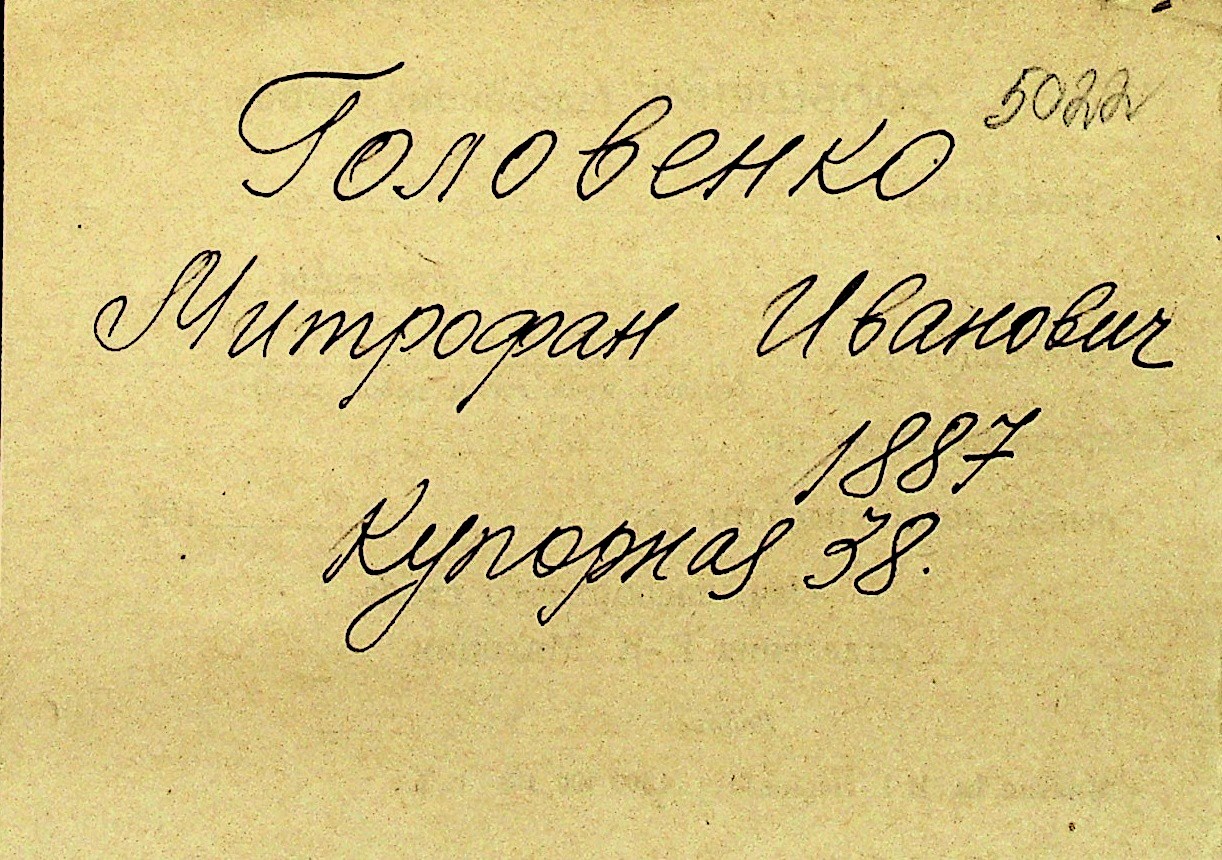 Головенко 5022
Митрофан Иванович
1887
Купорная 38.